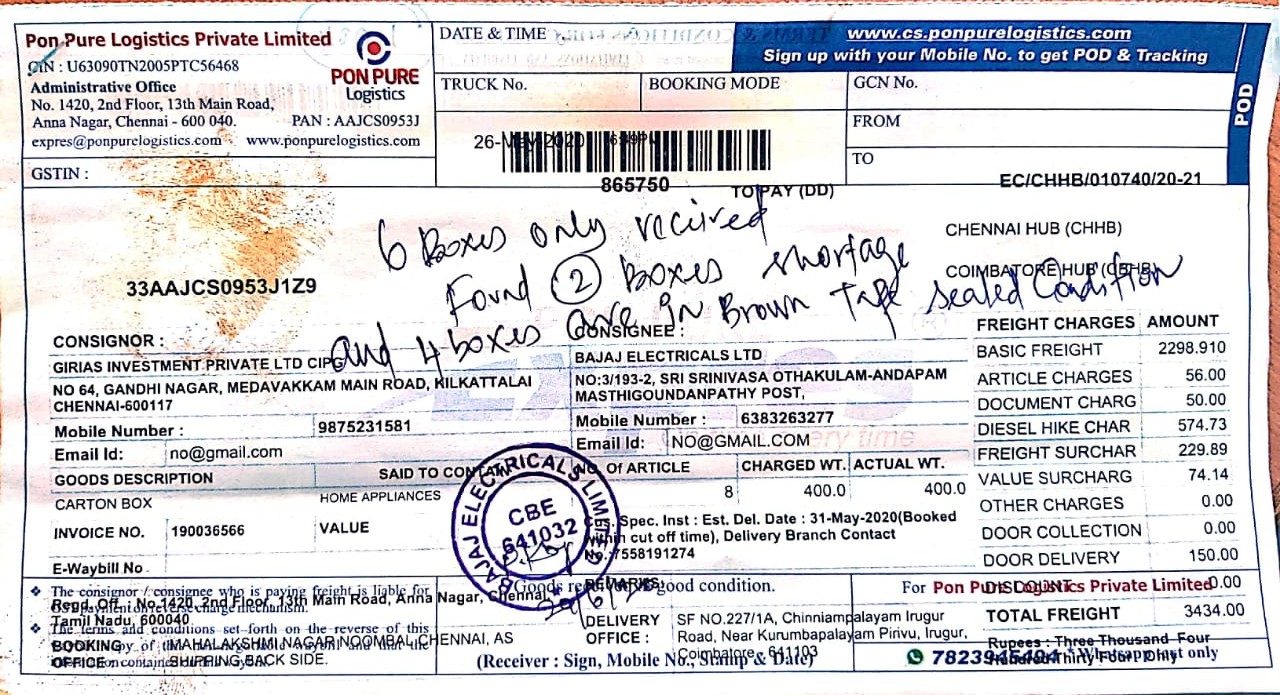 Pon Pure Logistics Private Limited
CIN : U63090TN2005PTC56468
Administrative Office
No. 1420, 2nd Floor, 13th Main Road,
Anna Nagar, Chennai - 600 040. PAN : AAJCS0953J
expres@ponpurelogistics.com www.ponpurelogistics.com
PON PURE
Logistics
GSTIN :
33AAJCS0953J1Z9
DATE & TIME
TRUCK No. BOOKING MODE
26-May-2020
865750
TO PAY (DD)
www.cs.ponpurelogistics.com
Sign up with your Mobile No. to get POD & Tracking
POD
GCN No.
FROM
TO
EC/CHHB/010740/20-21
CHENNAI HUB (CHHB)
COIMBATORE HUB (CBHB)
6 Boxes only recived
Found 2 boxes shortage
and 4 boxes are in Brown tape sealed Condition
CONSIGNOR :
GIRIAS INVESTMENT PRIVATE LTD CIP
NO 64, GANDHI NAGAR, MEDAVAKKAM MAIN ROAD, KILKATTALAI
CHENNAI-600117
Mobile Number : 9875231581
Email Id: no@gmail.com
CONSIGNEE :
BAJAJ ELECTRICALS LTD
NO:3/193-2, SRI SRINIVASA OTHAKULAM-ANDAPAM
MASTHIGOUNDANPATHY POST,
Mobile Number : 6383263277
Email Id: NO@GMAIL.COM
GOODS DESCRIPTION SAID TO CONTAIN NO. Of ARTICLE CHARGED WT. ACTUAL WT.
CARTON BOX HOME APPLIANCES 8 400.0 400.0
INVOICE NO. 190036566 VALUE
E-Waybill No
Cus. Spec. Inst : Est. Del. Date : 31-May-2020(Booked
within cut off time), Delivery Branch Contact
No.:7558191274
BAJAJ ELECTRICALS LIMITED
CBE
641032
FREIGHT CHARGES AMOUNT
BASIC FREIGHT 2298.910
ARTICLE CHARGES 56.00
DOCUMENT CHARG 50.00
DIESEL HIKE CHAR 574.73
FREIGHT SURCHAR 229.89
VALUE SURCHARG 74.14
OTHER CHARGES 0.00
DOOR COLLECTION 0.00
DOOR DELIVERY 150.00
DISCOUNT 0.00
TOTAL FREIGHT 3434.00
Rupees : Three Thousand Four
Hundred Thirty Four Only
The consignor / consignee who is paying freight is liable for
Regd. Off : No.1420, 2nd Floor, 13th Main Road, Anna Nagar, Chennai
Tamil Nadu, 600040
The terms and conditions set forth on the reverse of this
BOOKING OFFICE : MAHALAKSHMI NAGAR, NOOMBAL, CHENNAI, AS
SHIPPING BACK SIDE.
Goods received in good condition.
REMARKS:
DELIVERY OFFICE : SF NO.227/1A, Chinniampalayam Irugur
Road, Near Kurumbapalayam Pirivu, Irugur,
Coimbatore 641103
(Receiver : Sign, Mobile No., Stamp & Date)
For Pon Pure Logistics Private Limited